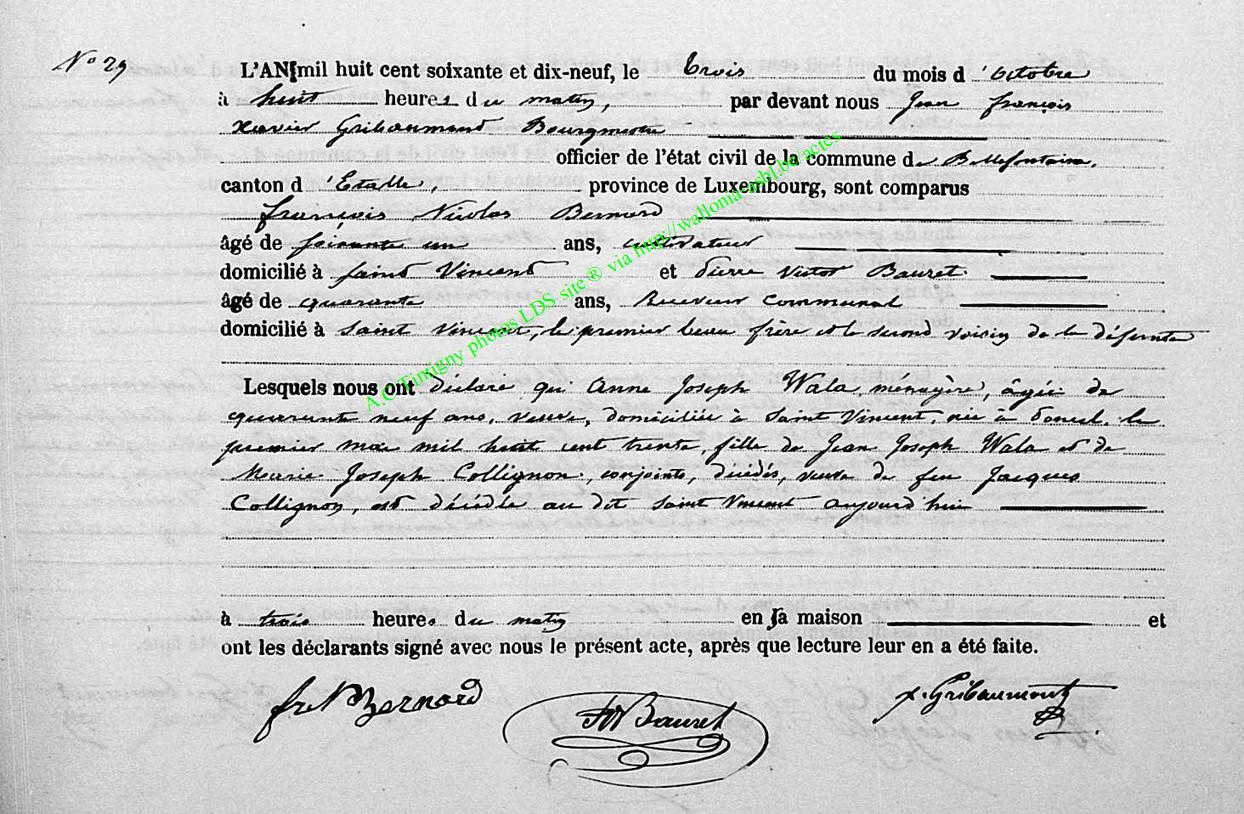 N° 29
L'AN mil huit cent soixante et dix-neuf, le trois du mois d'octobre
à huit heures du matin, par devant nous Jean François
Xavier Gribaumont Bourgmestre
officier de l'état civil de la commune de Bellefontaine,
canton d'Etalle, province de Luxembourg, sont comparus
François Nicolas Bernard
âgé de soixante un ans, cultivateur
domicilié à Saint Vincent et Pierre Victor Bauret
âgé de quarante ans, Receveur communal
domicilié à Saint Vincent, le premier beau frère et le second voisin de la défunte
Lesquels nous ont déclaré que Anne Joseph Wala, ménagère, âgée de
quarante neuf ans, veuve, domiciliée à Saint Vincent, née à le
premier mai mil huit cent trente, fille de Jean Joseph Wala et de
Marie Joseph Collignon, conjoints, décédés, veuve de feu Jacques
Collignon, est décédée au dit Saint Vincent aujourd'hui
à trois heures du matin en sa maison et
ont les déclarants signé avec nous le présent acte, après que lecture leur en a été faite.
frs N Bernard Bauret x. Gribaumont
A.C. Tintigny photos LDS site ® via http://wallonia-asbl.be/actes